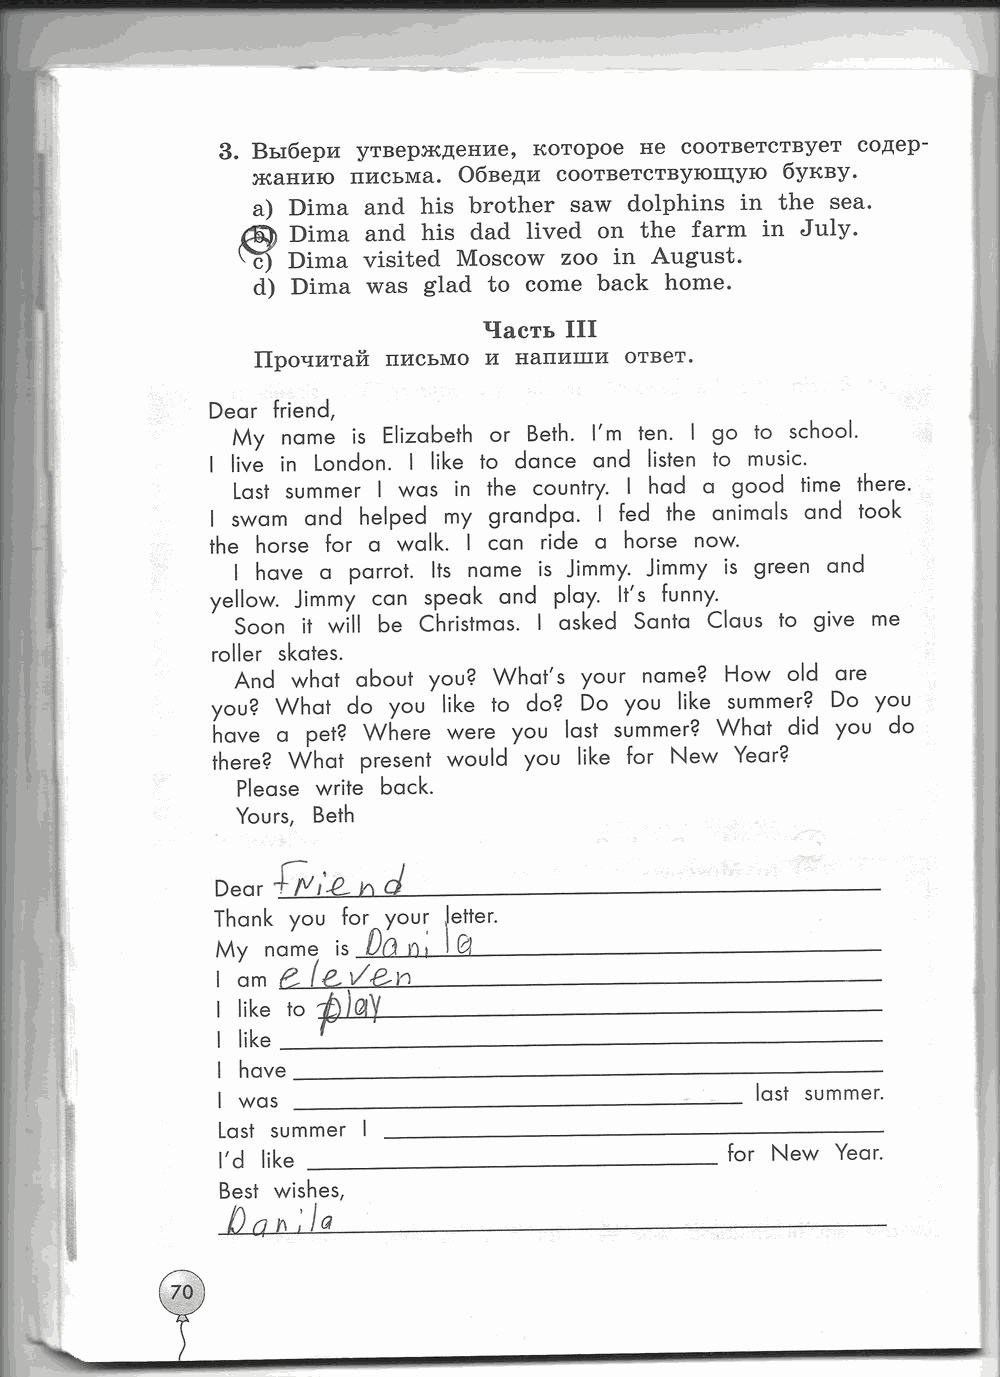 3. Выбери утверждение, которое не соответствует содер-
жанию письма. Обведи соответствующую букву.
a) Dima and his brother saw dolphins in the sea.
b) Dima and his dad lived on the farm in July.
c) Dima visited Moscow zoo in August.
d) Dima was glad to come back home.
Часть III
Прочитай письмо и напиши ответ.
Dear friend,
My name is Elizabeth or Beth. I'm ten. I go to school.
I live in London. I like to dance and listen to music.
Last summer I was in the country. I had a good time there.
I swam and helped my grandpa. I fed the animals and took
the horse for a walk. I can ride a horse now.
I have a parrot. Its name is Jimmy. Jimmy is green and
yellow. Jimmy can speak and play. It's funny.
Soon it will be Christmas. I asked Santa Claus to give me
roller skates.
And what about you? What's your name? How old are
you? What do you like to do? Do you like summer? Do you
have a pet? Where were you last summer? What did you do
there? What present would you like for New Year?
Please write back.
Yours, Beth
Dear friend
Thank you for your letter.
My name is Danila
I am eleven
I like to play
I like
I have
I was last summer.
Last summer I
I'd like for New Year.
Best wishes,
Danila
70